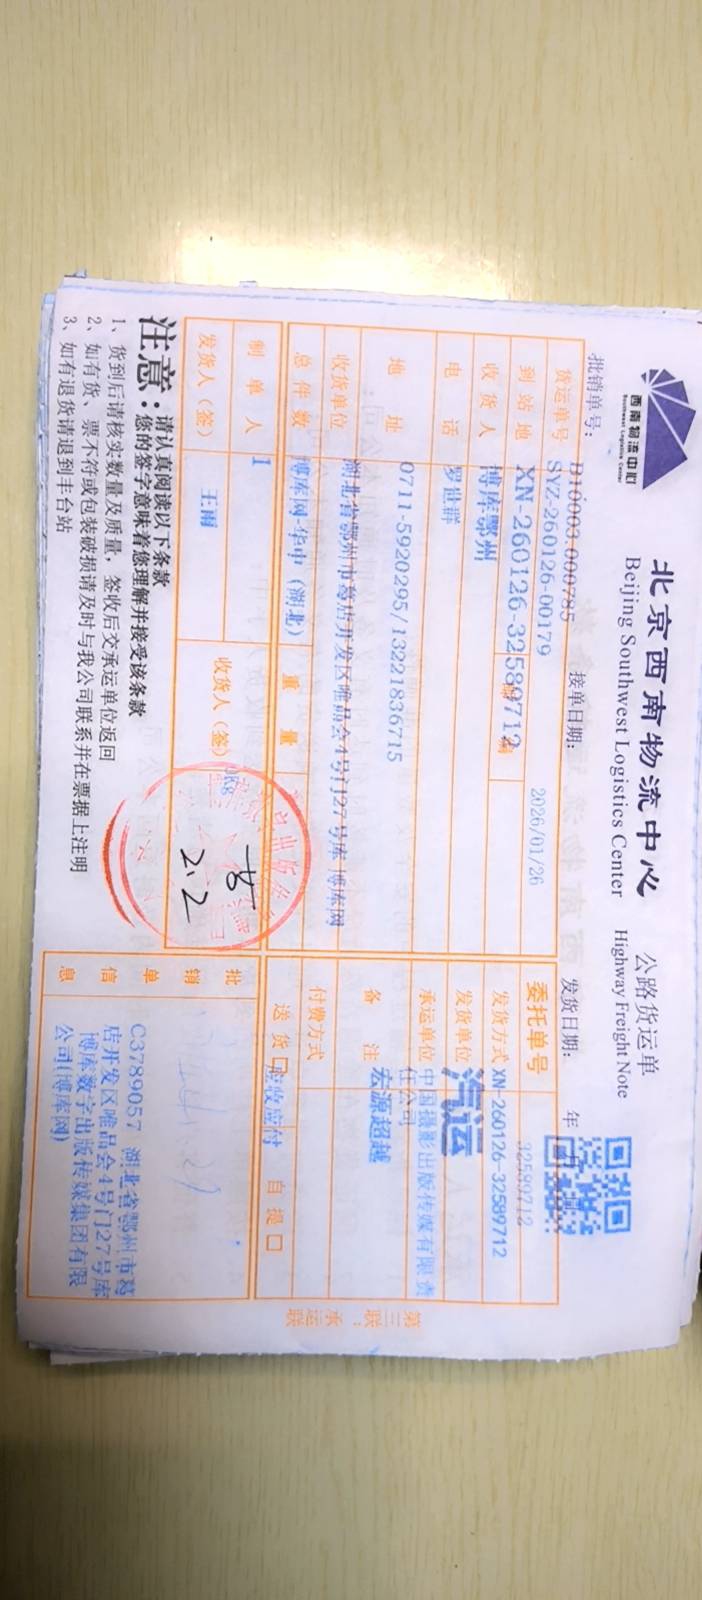 西南物流中心
Southwest Logistics Center
北京西南物流中心 公路货运单
Beijing Southwest Logistics Center Highway Freight Note
批销单号: B10003-000785 接单日期: 2026/01/26 发货日期: 年
货运单号 SYZ-260126-00179
委托单号 32589712
到站地 XN-260126-32589712
发货方式 XN-260126-32589712
收货人 博库鄂州
发货单位 汽运
电话 罗世群
承运单位 中国摄影出版传媒有限责任公司
地址 0711-5920295/13221836715
备注 宏源超越
收货单位 湖北省鄂州市葛店开发区唯品会4号门27号库 博库网
付费方式
总件数 博库网-华中（湖北） 重量
送货口 应收应付 自提口
制单人 1
收货人（签）
2.2
发货人（签） 王雨
批销单信息
C3789057 湖北省鄂州市葛
店开发区唯品会4号门27号库
博库数字出版传媒集团有限
公司(博库网)
第三联：承运联
注意：请认真阅读以下条款
您的签字意味着您理解并接受该条款
1、货到后请核实数量及质量，签收后交承运单位返回
2、如有货、票不符或包装破损请及时与我公司联系并在票据上注明
3、如有退货请退到丰台站